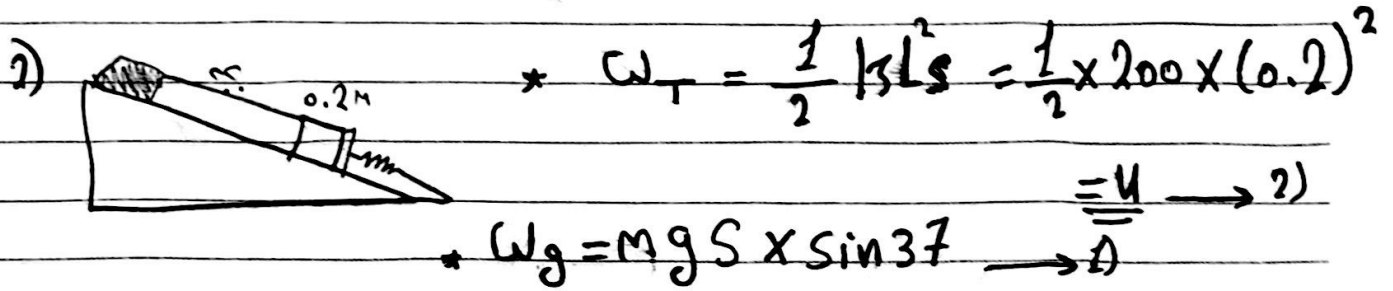 2)
0.2M
* W_T = 1/2 KL²s = 1/2 × 200 × (0.2)²
= 4 → 2)
* Wg = mgS × sin37 → 1)